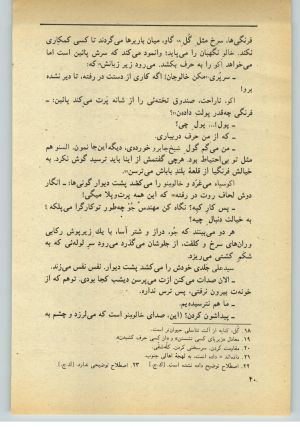 فرنگی‌ها، سرخ مثل گل ۱۸ گاو، میان باربرها می‌گردند تا کسی کمکاری
نکند. خالو نگهبان را می‌پاید؛ وانمود می‌کند که سرش پائین است اما
می‌خواهد اکو را به حرف بکشد. می‌رود زیر زبانش که:
ـ سرپری «مکن خالوجان! اگه کاری از دستت در رفته، تا دیر نشده
برو!
اکو، ناراحت، صندوق تخته‌ئی را از شانه پرت می‌کند پائین: ـ
فرنگی چه‌قدر پولت دادن؟
ـ پول!... پول چی؟
ـ که از من حرف دربیاری.
ـ من می‌گم گول شیخ‌جابر و خوردی، دیگه این‌جا نمون. السنو هم
مثل تو بی‌احتیاط بود. هرچی گفتمش از اینا باید ترسید گوش نکرد. به
خیالش فرنگیا از قلعهٔ بلند باباش می‌ترسن.
اکوسیاه می‌غرد و خالوبینو را می‌کشد پشت دیوار گونی‌ها: ـ انگار
دوش لحاف روت در رفته، که این همه پرت‌وپلا میگی!
ـ پس کار کیه؟ نگاه کن مهندس جو چه‌طور توکارگرا می‌پلکه!
به خیالت دنبال چیه؟
هر دو می‌بینند که جو، دراز و شتر آسا، با یک زیرپوش رکابی
و ران‌های سرخ و کلفت، از جلوشان می‌گذرد می‌رود سر لوله‌ئی که به
شکم کشتی می‌ریزد.
سیدعلی جلدی خودش را می‌کشد پشت دیوار. نفس نفس می‌زند.
ـ الان صدات می‌کنن ازت می‌پرسن دیشب کجا بودی. توهم که از
خونه‌ت بیرون نرفتی، پس ترس نداره.
ـ ما هم نترسیدیم.
ـ پیداشون کردن؟ (این، صدای خالوبینو است که می‌لرزد و چشم به
۱۸. گل، کنایه از آلت تناسلی حیوان‌نر است.
۲۰. مقاومت کردن، سرسختی کردن، کله‌شقی.
۲۲. اصطلاح توضیح داده نشده است. (ک.ج.) ۲۳. اصطلاح توضیحی ندارد. (ک.ج.)
۴۰